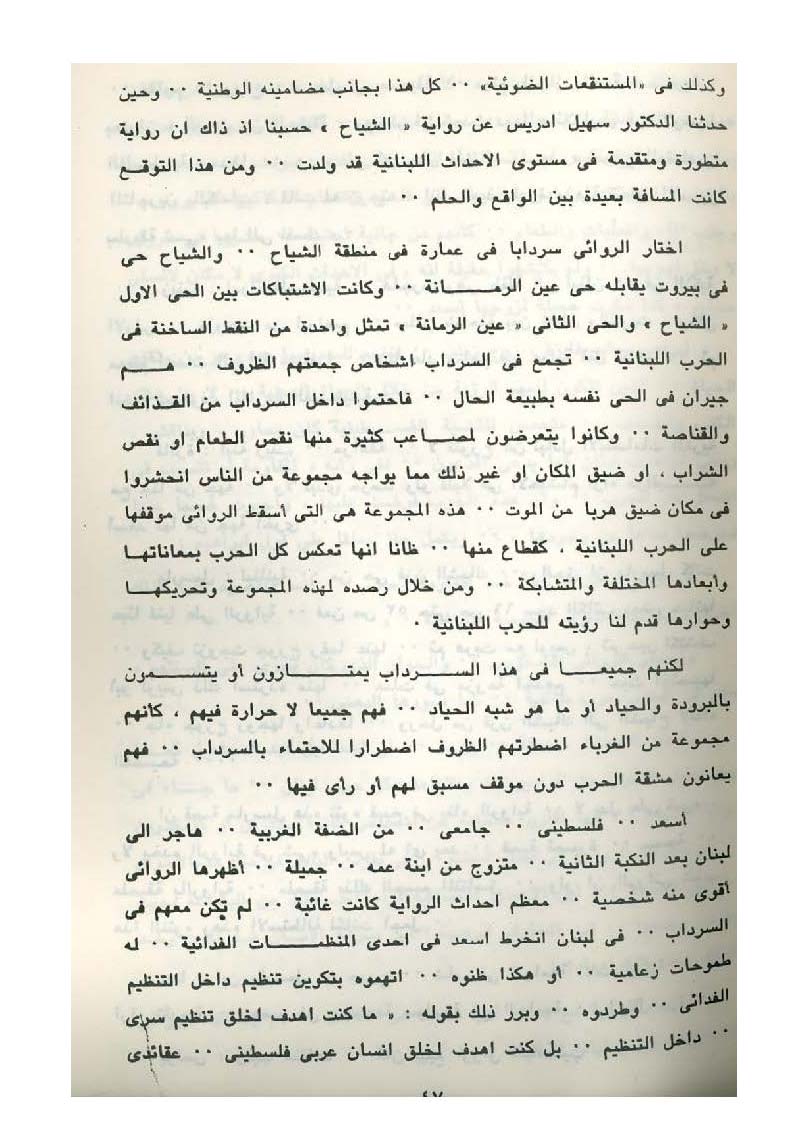 وكذلك فى «المستنقعات الضوئية» ٠٠ كل هذا بجانب مضامينه الوطنية ٠٠ وحين
حدثنا الدكتور سهيل ادريس عن رواية « الشياح » حسبنا اذ ذاك ان رواية
متطورة ومتقدمة فى مستوى الاحداث اللبنانية قد ولدت ٠٠ ومن هذا التوقـع
كانت المسافة بعيدة بين الواقع والحلم ٠٠
اختار الروائى سردابا فى عمارة فى منطقة الشياح ٠٠ والشياح حى
فى بيروت يقابله حى عين الرمـــــانة ٠٠ وكانت الاشتباكات بين الحى الاول
« الشياح » والحى الثانى « عين الرمانة » تمثل واحدة من النقط الساخنة فى
الحرب اللبنانية ٠٠ تجمع فى السرداب اشخاص جمعتهم الظروف ٠٠ هـــم
جيران فى الحى نفسه بطبيعة الحال ٠٠ فاحتموا داخل السرداب من القـذائف
والقناصة ٠٠ وكانوا يتعرضون لمصـــاعب كثيرة منها نقص الطعام او نقص
الشراب ، او ضيق المكان او غير ذلك مما يواجه مجموعة من الناس انحشروا
فى مكان ضيق هربا من الموت ٠٠ هذه المجموعة هى التى أسقط الروائى موقفها
على الحرب اللبنانية ، كقطاع منها ٠٠ ظانا انها تعكس كل الحرب بمعاناتهـا
وأبعادها المختلفة والمتشابكة ٠٠ ومن خلال رصده لهذه المجموعة وتحريكهـا
وحوارها قدم لنا رؤيته للحرب اللبنانية ٠
لكنهم جميعـــا فى هذا الســـرداب يمتـــازون أو يتســـمون
بالبرودة والحياد أو ما هو شبه الحياد ٠٠ فهم جميعا لا حرارة فيهم ، كأنهم
مجموعة من الغرباء اضطرتهم الظروف اضطرارا للاحتماء بالسرداب ٠٠ فهم
يعانون مشقة الحرب دون موقف مسبق لهم أو رأى فيها ٠٠
أسعد ٠٠ فلسطينى ٠٠ جامعى ٠٠ من الضفة الغربية ٠٠ هاجر الى
لبنان بعد النكبة الثانية ٠٠ متزوج من ابنة عمه ٠٠ جميلة ٠٠ أظهرها الروائى
أقوى منه شخصية ٠٠ معظم احداث الرواية كانت غائبة ٠٠ لم تكن معهم فى
السرداب ٠٠ فى لبنان انخرط اسعد فى احدى المنظمـــات الفدائية ٠٠ له
طموحات زعامية ٠٠ أو هكذا ظنوه ٠٠ اتهموه بتكوين تنظيم داخل التنظيم
الفدائى ٠٠ وطردوه ٠٠ وبرر ذلك بقوله : « ما كنت اهدف لخلق تنظيم سرى
٠٠ داخل التنظيم ٠٠ بل كنت اهدف لخلق انسان عربى فلسطينى ٠٠ عقائدى
٤٧